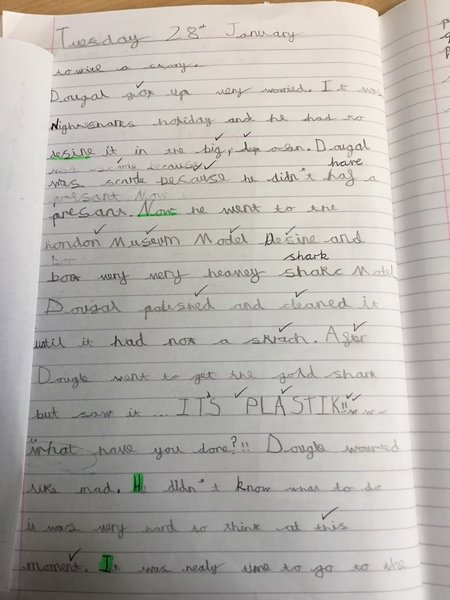 Tuesday 28th January
to write a story.
Dougal got up very worried. It was
Nightsharks holiday and he had to
desine it in the big, dep ocean. Dougal
was because
was scarde because he didn't haf a
have
presant Now
presant. Now he went to the
London Museum Model Desine and
shark
box very very heavey shake Model
Dougal polished and cleaned it
until it had not a skrach. After
Dougle went to get the gold shark
but saw it ... ITS PLASTIK!!
what have you done?!! Dougle worreed
like mad. He didn't know what to do
it was very hard to think at this
moment. It was nealy time to go to the